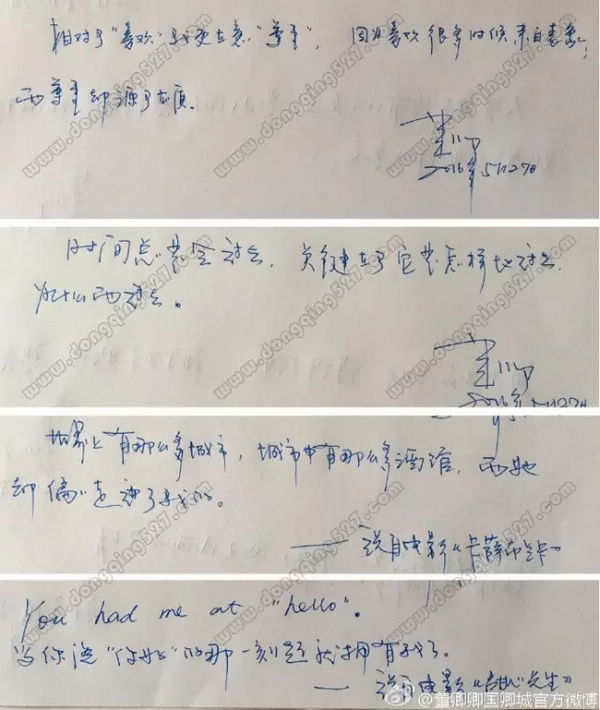 相对于“喜欢”我更在意“尊重”，因为喜欢很多时候来自表象，
而尊重却源于本质。
2016年5月27日
时间总要会过去，关键在于它要怎样地过去，
为什么而过去。
2016年5月27日
世界上有那么多城市，城市中有那么多酒馆，而她
却偏偏走进了我的。
——说自电影《卡萨布兰卡》
You had me at "hello".
当你说“你好”的那一刻起就拥有我了。
——说自电影《甜心先生》
@董卿卿国卿城官方微博
www.dongqing527.com